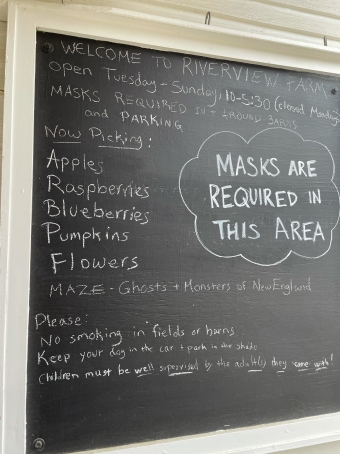 WELCOME TO RIVERVIEW FARM
Open Tuesday - Sunday, 10-5:30 (closed Mondays)
MASKS REQUIRED IN + AROUND BARNS
and PARKING
Now Picking:
Apples
Raspberries
Blueberries
Pumpkins
Flowers
MASKS ARE
REQUIRED IN
THIS AREA
MAZE - Ghosts + Monsters of New England
Please:
No smoking in fields or barns
Keep your dog in the car + park in the shade
Children must be well supervised by the adult(s) they came with!